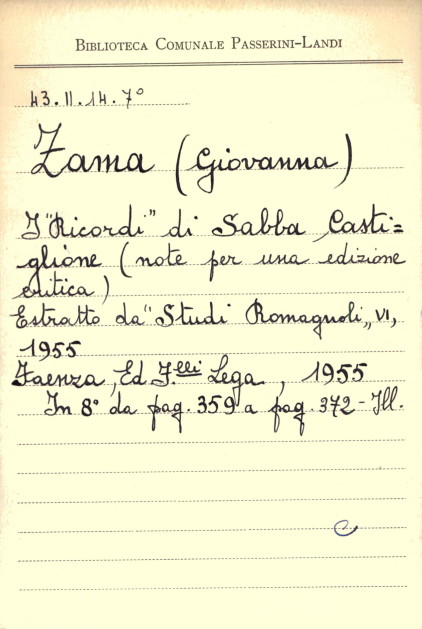 BIBLIOTECA COMUNALE PASSERINI-LANDI
43.II.14.7°
Zama (Giovanna)
I "Ricordi" di Sabba Casti=
glione (note per una edizione
critica)
Estratto da "Studi Romagnoli„ VI,
1955
Faenza, Ed F.lli Lega, 1955
In 8° da pag. 359 a pag. 372 - Ill.
C